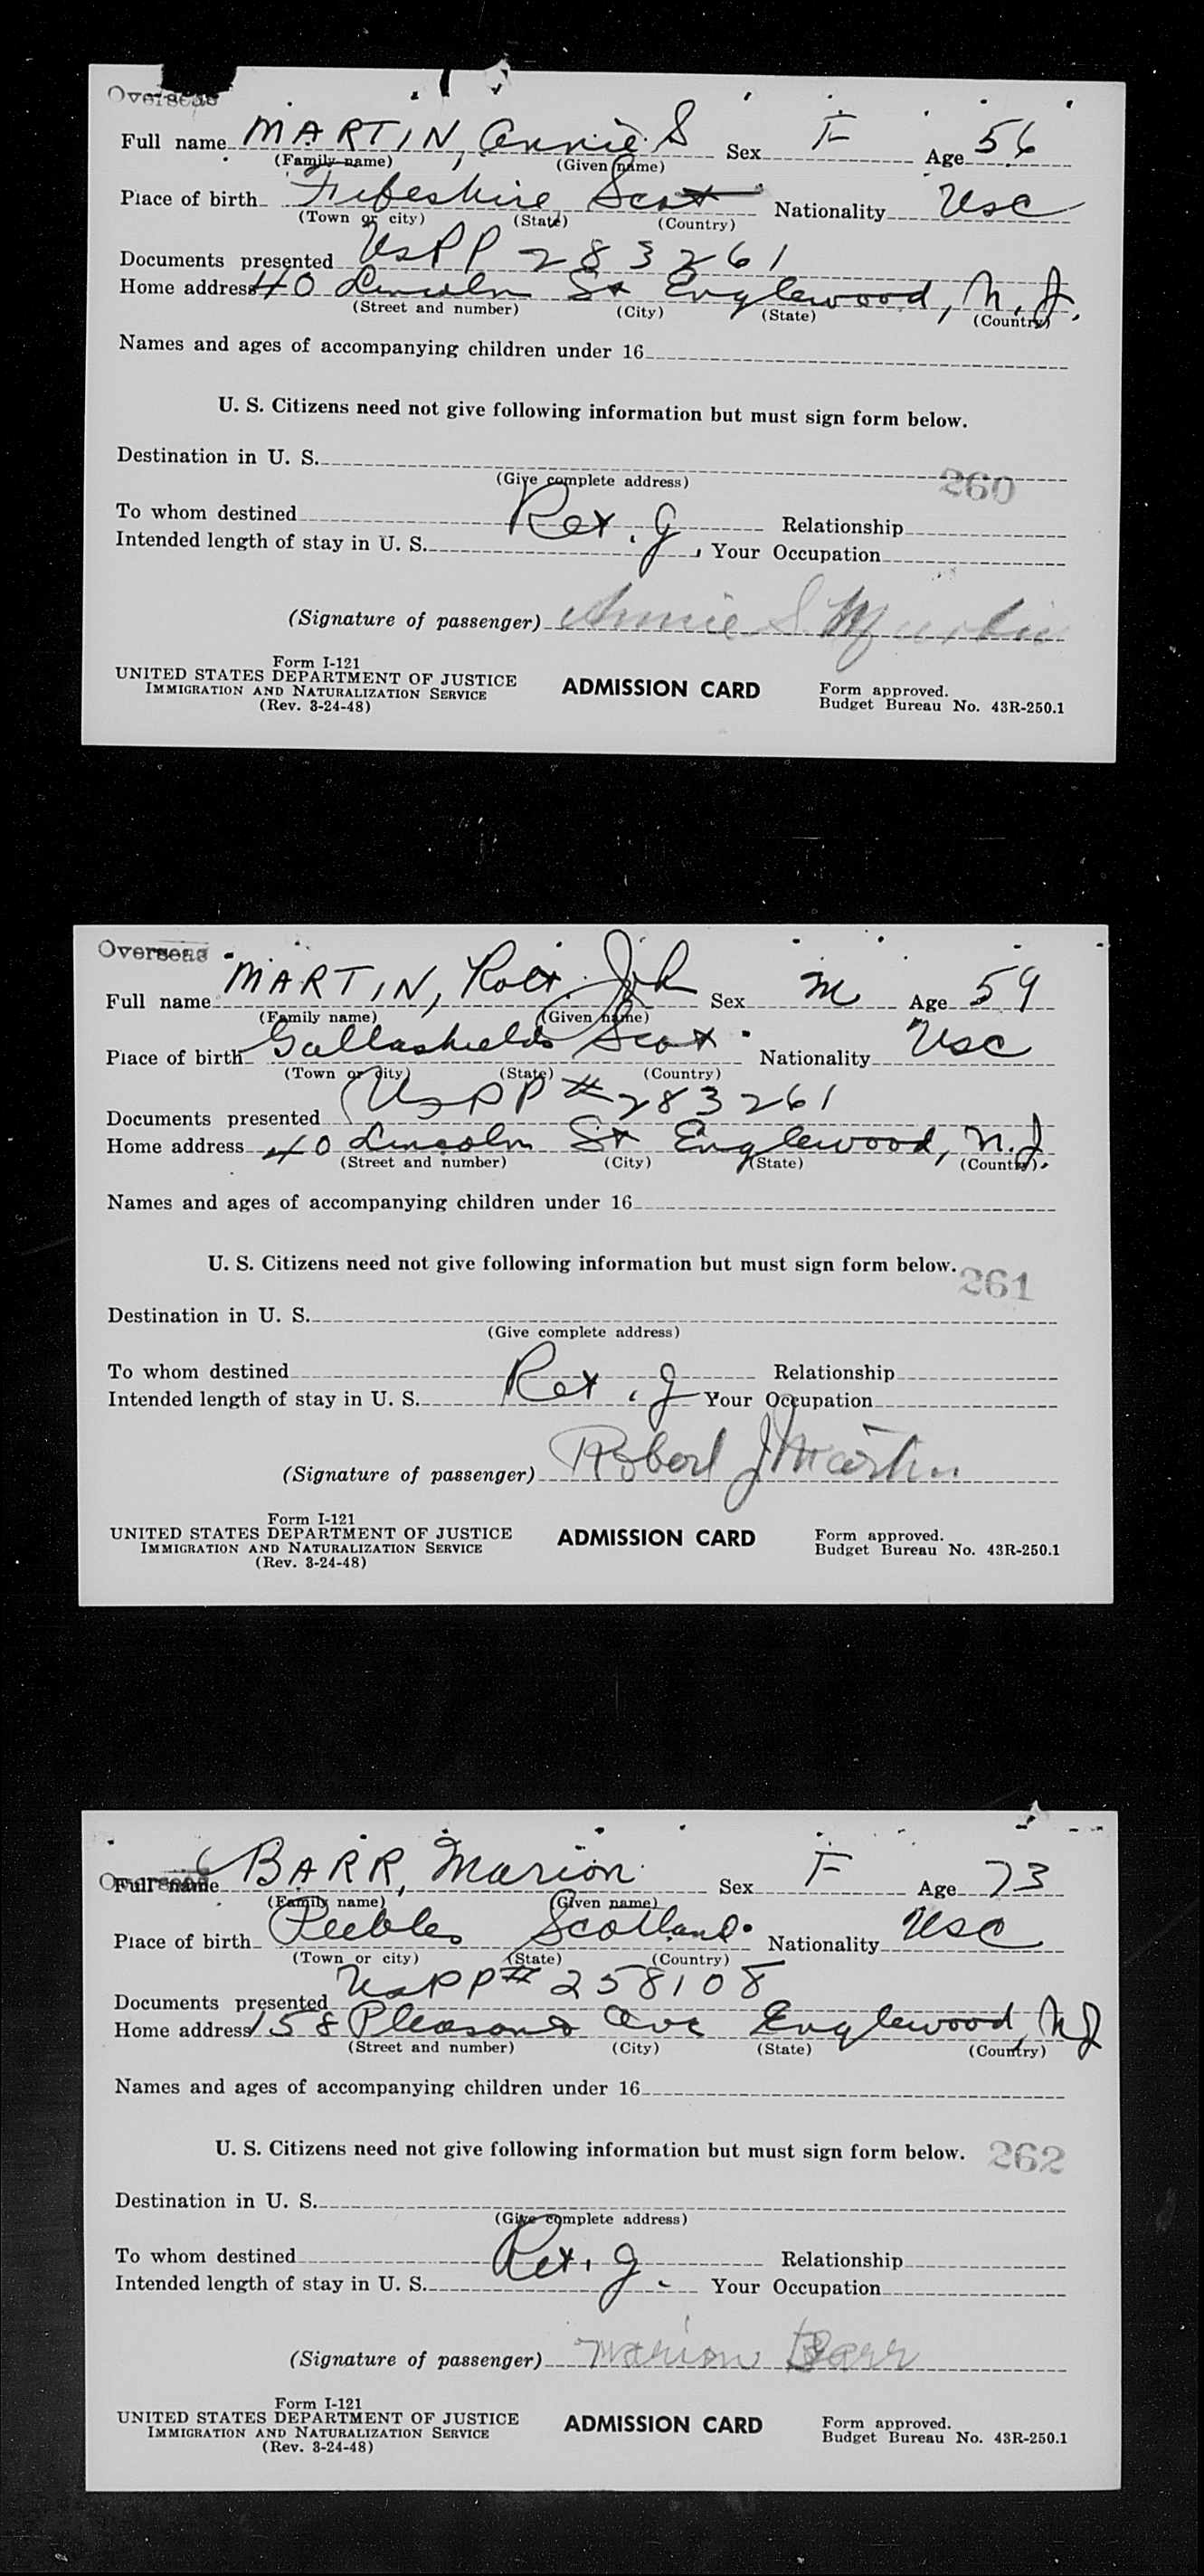 Overseas
Full name MARTIN, Annie S Sex F Age 56
(Family name) (Given name)
Place of birth Fifeshire Scot Nationality USC
(Town or city) (State) (Country)
Documents presented USPP 283261
Home address 40 Lincoln St Englewood, N.J.
(Street and number) (City) (State) (Country)
Names and ages of accompanying children under 16
U. S. Citizens need not give following information but must sign form below.
Destination in U. S.
(Give complete address) 260
To whom destined Relationship
Intended length of stay in U. S. Ret. J Your Occupation
(Signature of passenger) Annie S. Martin
Form I-121
UNITED STATES DEPARTMENT OF JUSTICE
IMMIGRATION AND NATURALIZATION SERVICE
(Rev. 3-24-48)
ADMISSION CARD
Form approved.
Budget Bureau No. 43R-250.1
Overseas
Full name MARTIN, Robt. Sex M Age 59
(Family name) (Given name)
Place of birth Gallashields Scot Nationality USC
(Town or city) (State) (Country)
Documents presented USPP # 283261
Home address 40 Lincoln St Englewood, N.J.
(Street and number) (City) (State) (Country)
Names and ages of accompanying children under 16
U. S. Citizens need not give following information but must sign form below. 261
Destination in U. S.
(Give complete address)
To whom destined Relationship
Intended length of stay in U. S. Ret. J Your Occupation
(Signature of passenger) Robert J Martin
Form I-121
UNITED STATES DEPARTMENT OF JUSTICE
IMMIGRATION AND NATURALIZATION SERVICE
(Rev. 3-24-48)
ADMISSION CARD
Form approved.
Budget Bureau No. 43R-250.1
Overseas
Full name BARR, Marion Sex F Age 73
(Family name) (Given name)
Place of birth Peebles Scotland Nationality USC
(Town or city) (State) (Country)
Documents presented USPP # 258108
Home address 158 Pleasant Ave Englewood, NJ
(Street and number) (City) (State) (Country)
Names and ages of accompanying children under 16
U. S. Citizens need not give following information but must sign form below. 262
Destination in U. S.
(Give complete address)
To whom destined Relationship
Intended length of stay in U. S. Ret. J. Your Occupation
(Signature of passenger) Marion Barr
Form I-121
UNITED STATES DEPARTMENT OF JUSTICE
IMMIGRATION AND NATURALIZATION SERVICE
(Rev. 3-24-48)
ADMISSION CARD
Form approved.
Budget Bureau No. 43R-250.1